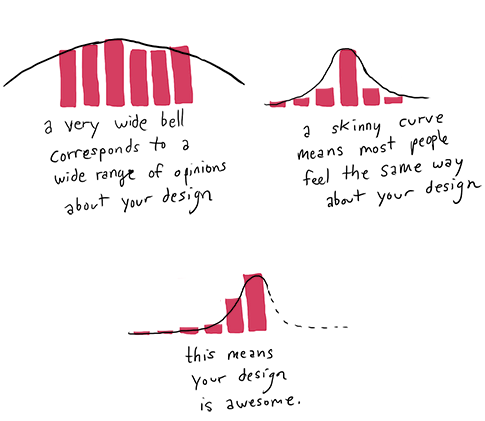 a very wide bell
corresponds to a
wide range of opinions
about your design
a skinny curve
means most people
feel the same way
about your design
this means
your design
is awesome.